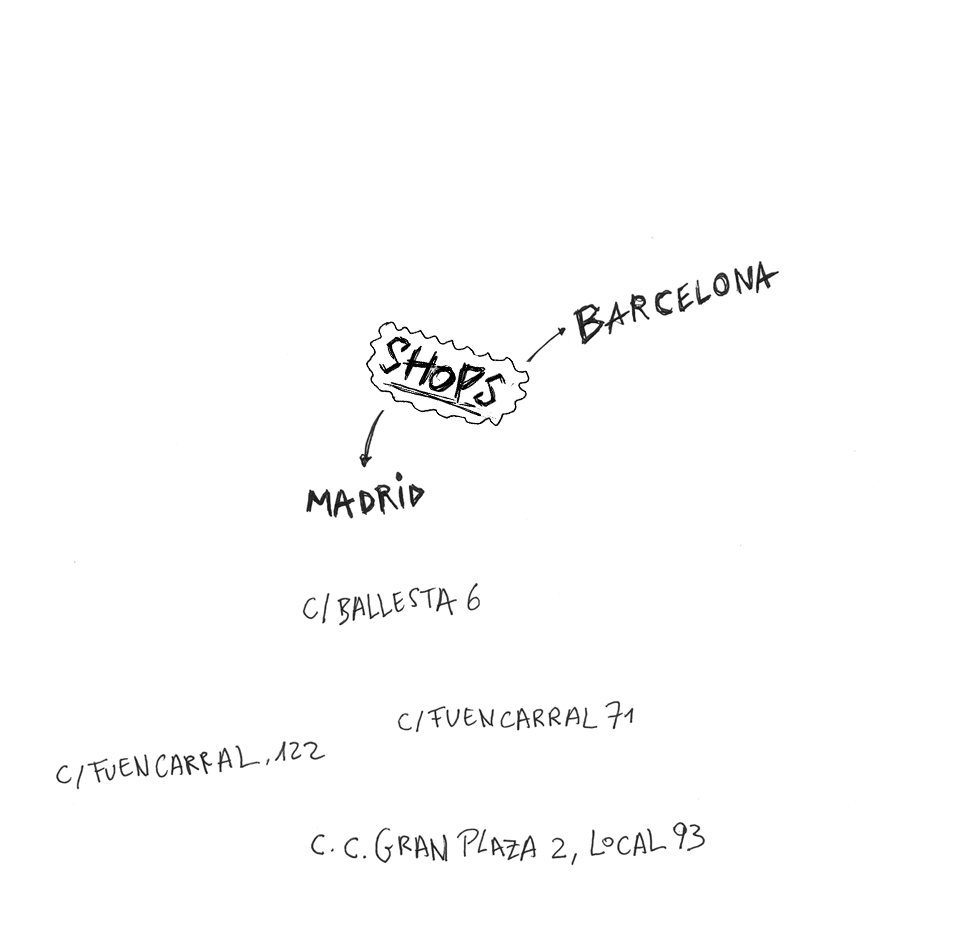 BARCELONA
SHOPS
MADRID
C/BALLESTA 6
C/FUENCARRAL 71
C/FUENCARRAL, 122
C.C. GRAN PLAZA 2, LOCAL 93